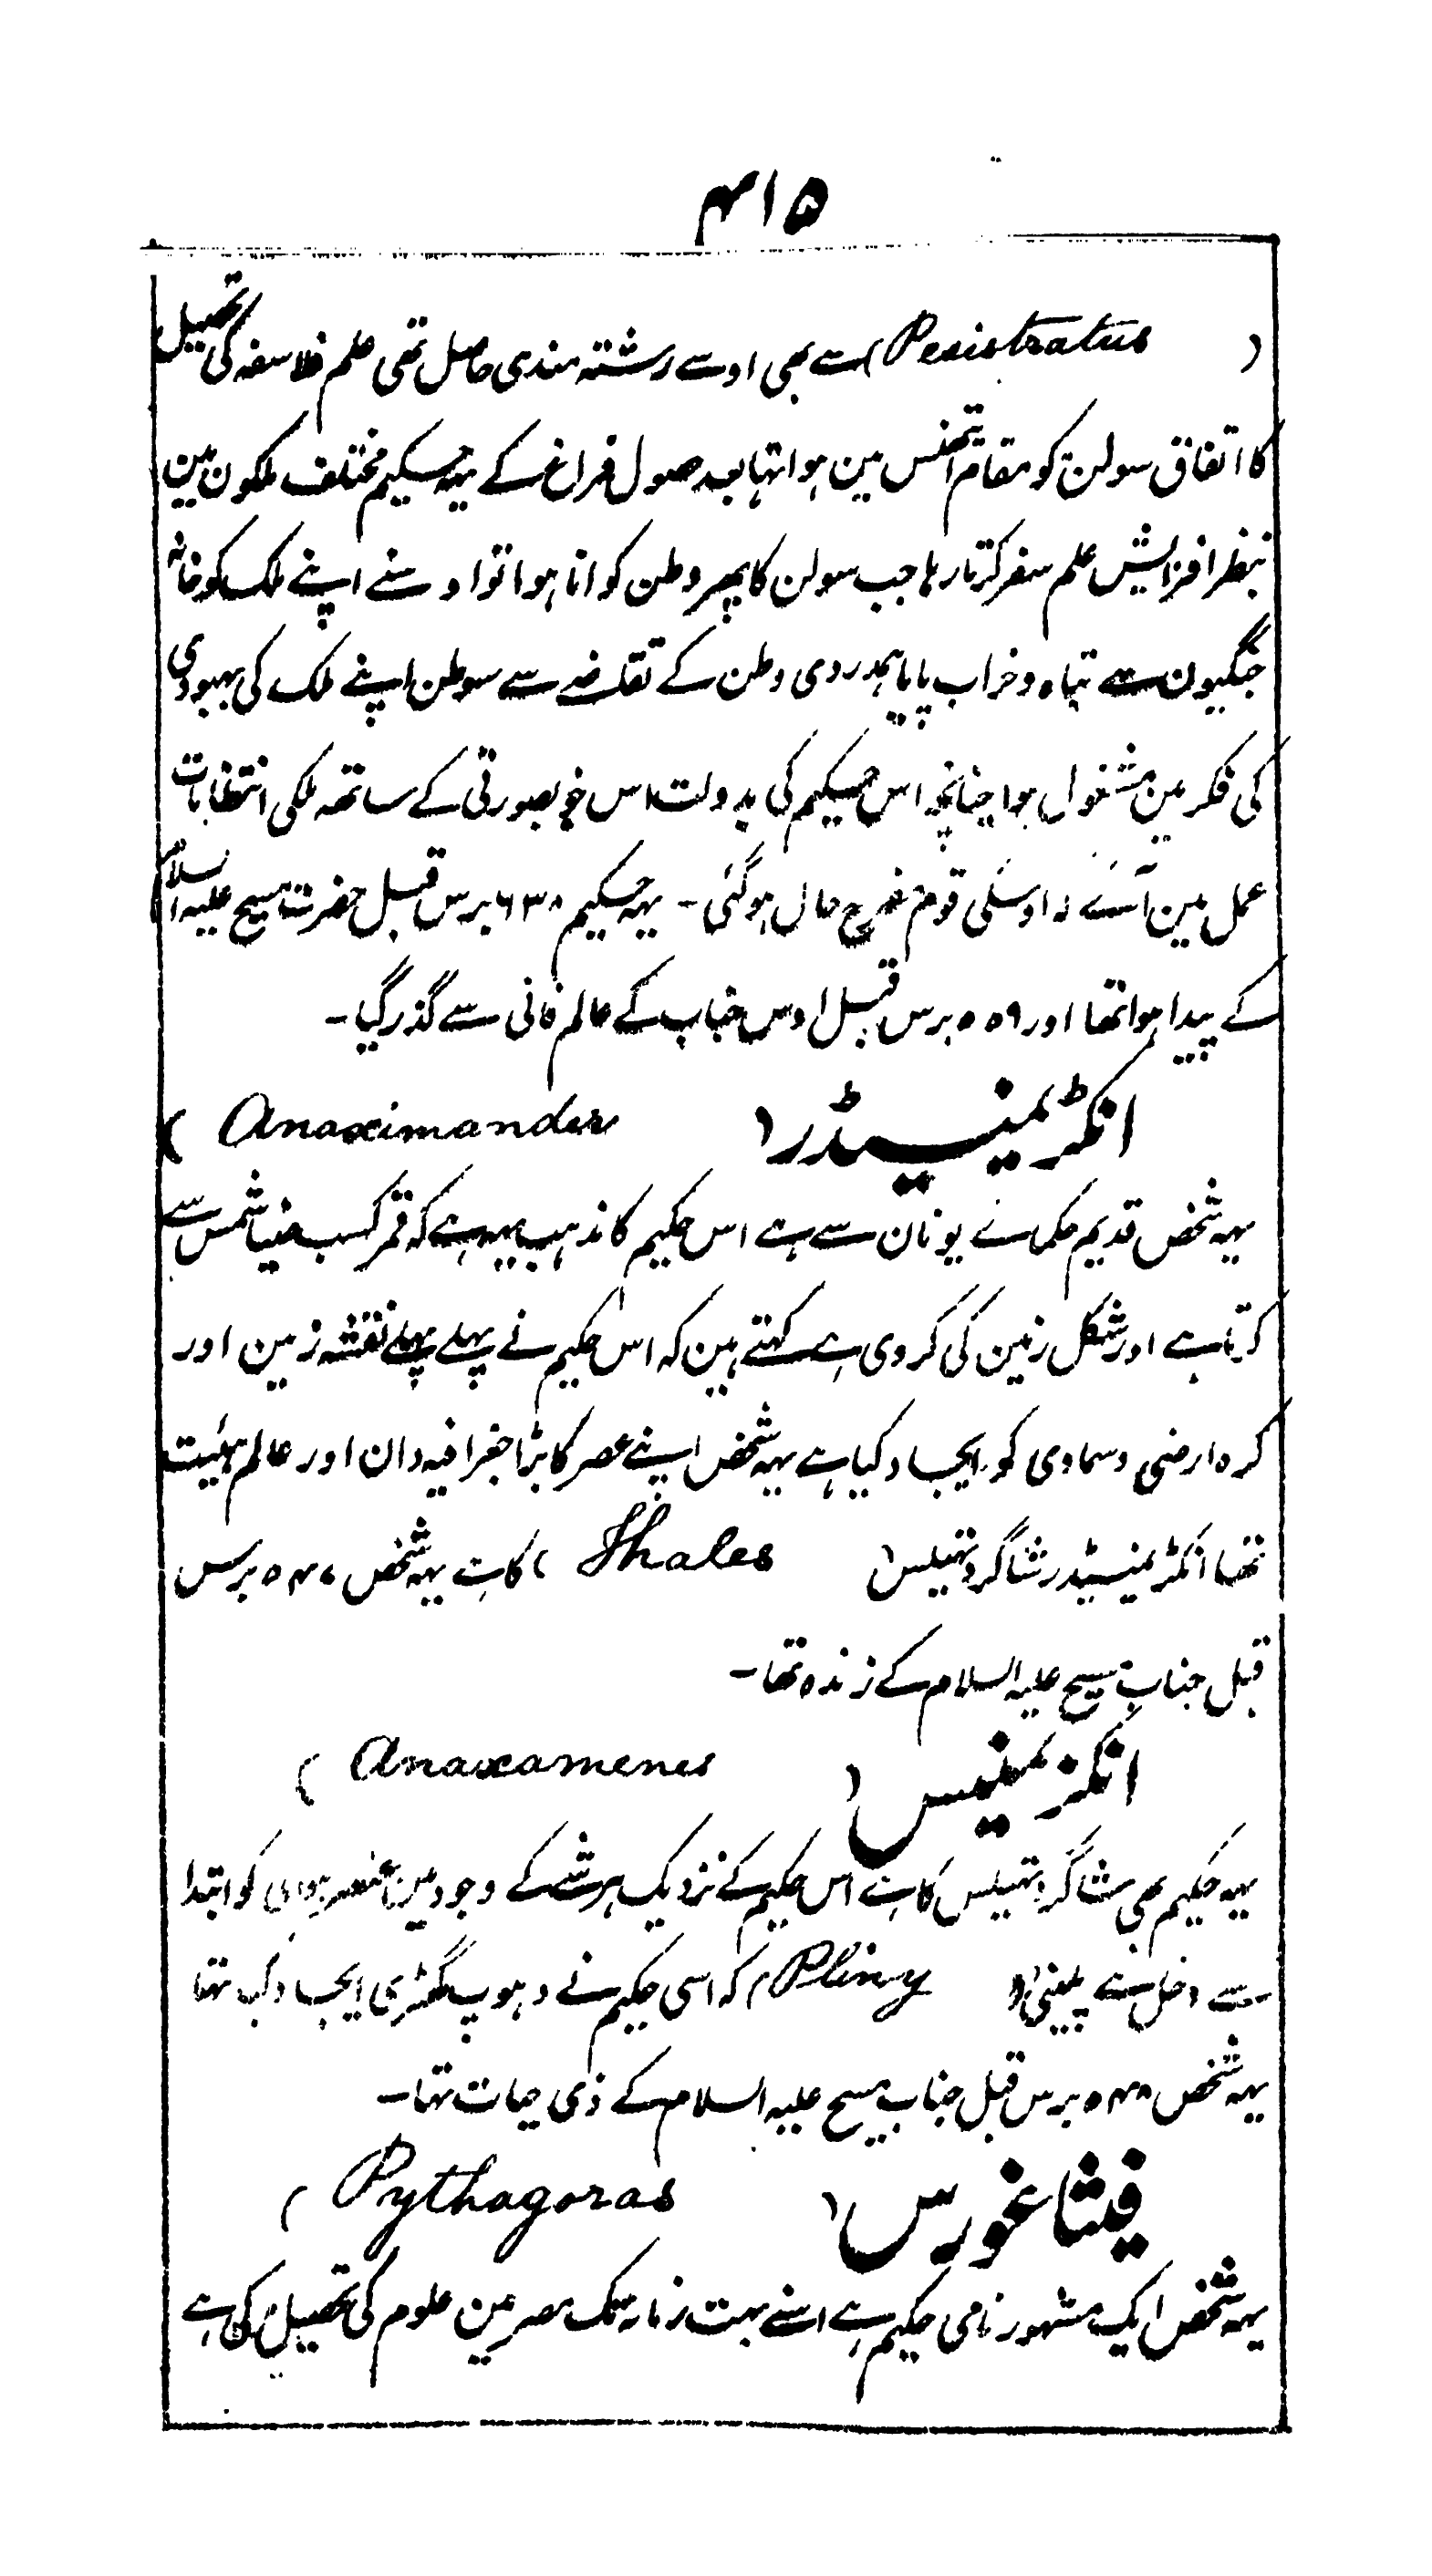 ۴۱۵
( Pesistratus) سے بھی اوسے رشتہ مندی حاصل تھی علم فلاسفہ کی تحصیل
کا اتفاق سولن کو مقام اتھنس مین ہوا تہا بعد حصول فراغ کے یہہ حکیم مختلف ملکون مین
بنظر افزایش علم سفر کرتا رہا جب سولن کا پھر وطن کو انا ہوا تو اوسنے اپنے ملک کو خانہ
جنگیون سے تباہ و خراب پایا ہمدردی وطن کے تقاضے سے سولن اپنے ملک کی بہبودی
کی فکر مین مشغول ہوا چنانچہ اس حکیم کی بدولت اس خوبصورتی کے ساتھہ ملکی انتظامات
عمل مین آئے کہ اوسکی قوم مفرح حال ہو گئی ۔ یہہ حکیم ۶۳۸ برس قبل حضرت مسیح علیہ السلام
کے پیدا ہوا تھا اور ۵۵۹ برس قبل اوس جناب کے عالم فانی سے گذر گیا ۔
انکزیمنیڈر ( Anaximander )
یہہ شخص قدیم حکمائے یونان سے ہے اس حکیم کا مذہب یہہ ہے کہ قمر کسب ضیا شمس سے
کرتا ہے اور شکل زمین کی کروی ہے کہتے ہین کہ اس حکیم نے پہلے پہلے نقشہ زمین اور
کرہ ارضی و سماوی کو ایجاد کیا ہے یہہ شخص اپنے عصر کا بڑا جغرافیہ دان اور عالم ہئیت
تھا انکزیمنیڈر شاگرد تہیلس ( Thales ) کا ہے یہہ شخص ۵۴۷ برس
قبل جناب مسیح علیہ السلام کے زندہ تھا ۔
انکزیمنیس ( Anaxamenes )
یہہ حکیم بھی شاگرد تہیلس کا ہے اس حکیم کے نزدیک ہر شے کے وجود مین عنصر ہوائی کو ابتدا
سے دخل ہے پلینی ( Pliny ) کہ اسی حکیم نے دہوپ گھڑی ایجاد کیا تھا
یہہ شخص ۵۴۸ برس قبل جناب مسیح علیہ السلام کے ذی حیات تہا ۔
فیثاغورس ( Pythagoras )
یہہ شخص ایک مشہور نامی حکیم ہے اسنے بہت زمانہ تک مصر مین علوم کی تحصیل کی ہے